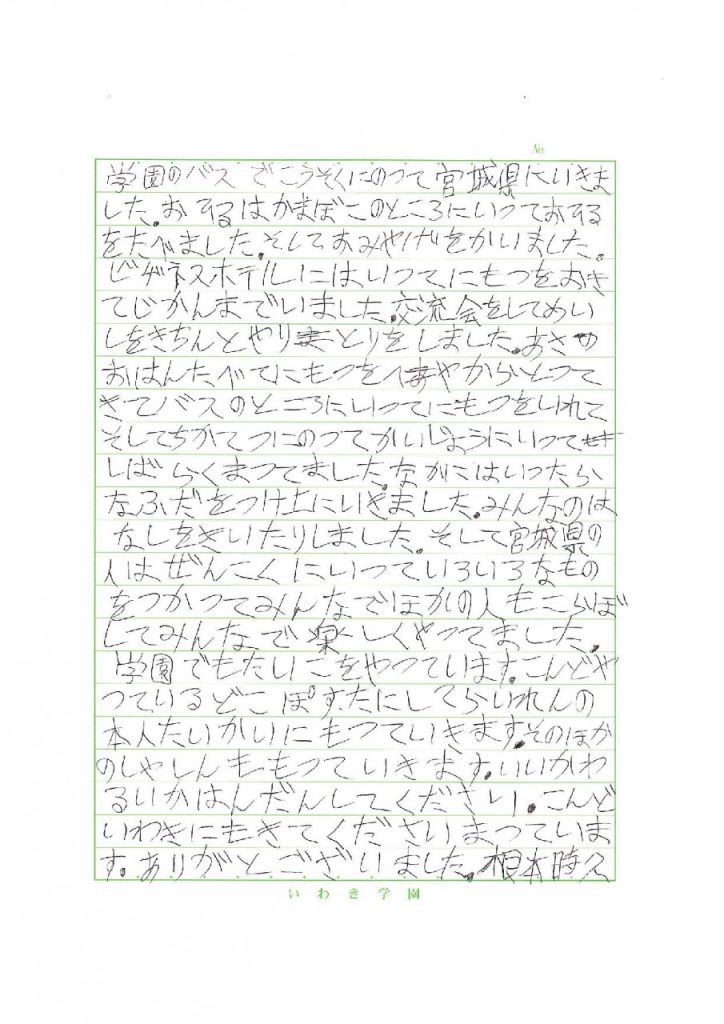 No.
学園のバスでこうそくにのって宮城県にいきま
した。おひるはかまぼこのところにいっておひる
をたべました。そしておみやげをかいました。
ビヂネスホテルにはいってにもつをおき
てじかんまでいました。交流会をしてめい
しをきちんとやりとりをしました。あさの
おはんたべてにもつをへやからとって
きてバスのところにいってにもつをいれて
そしてちかてつにのってかいじょうにいって
しばらくまってました。なかにはいったら
なふだをつけ上にいきました。みんなのは
なしをきいたりしました。そして宮城県の
人は、ぜんこくにいっていろいろなもの
をつかってみんなでほかの人もこらぼ
してみんなで楽しくやってました。
学園でもたいこをやっています。こんどや
っているどこぽすたにしてらいれんの
本人たいかいにもっていきます。そのほか
のしゃしんももっていきます。いいかわ
るいかはんだんしてください。こんど
いわきにもきてくださいまっていま
す。ありがとございました。根本時久
いわき学園